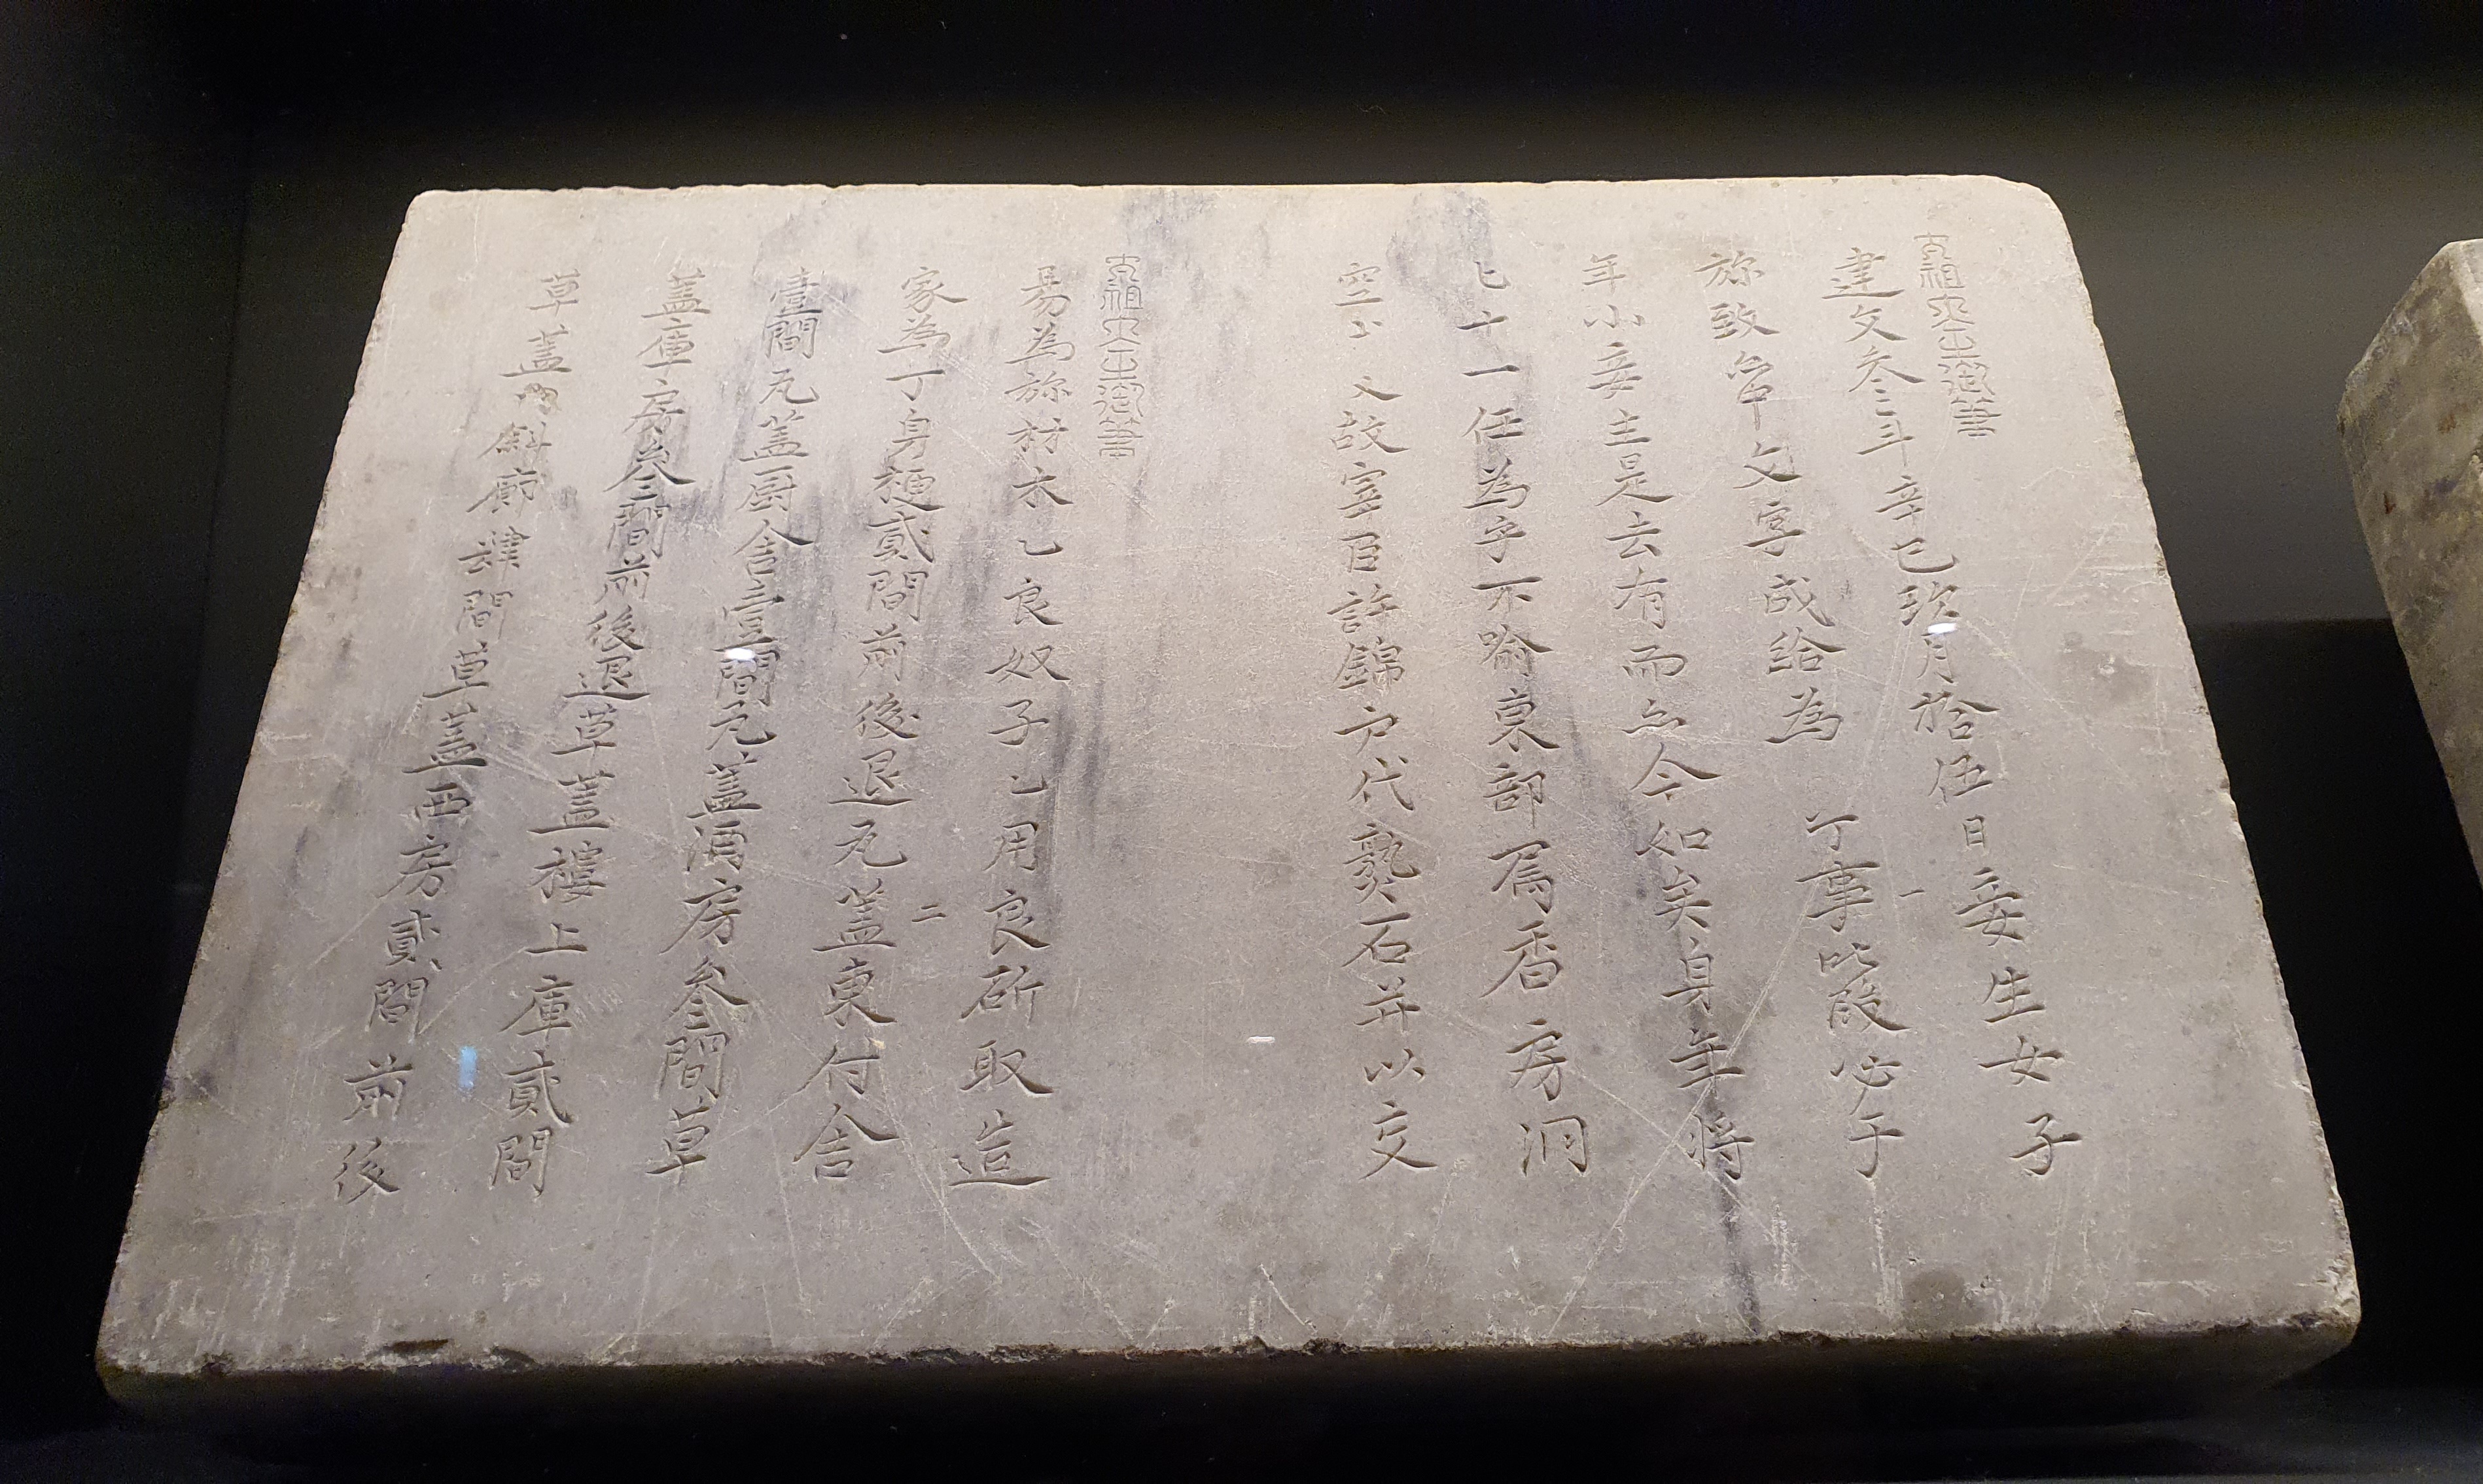 太祖大王御筆
建文叁年辛巳玖月拾伍日妾生女子
旀致亦中文字成給為 丁事叱段必于
年小妾主是去有而亦今如矣身年將
七十一任為乎不喻東部属香房洞
空 代 故宰臣許錦戶代熟石幷以交
一
太祖大王御筆
易為旀材木乙良奴子乙用良斫取造
家為丁身梗貳間前後退瓦蓋東付舍
壹間瓦蓋厨舍壹間瓦蓋酒房叁間草
蓋庫房叁間前後退草蓋樓上庫貳間
草蓋內斜廊肆間草蓋西房貳間前後
二